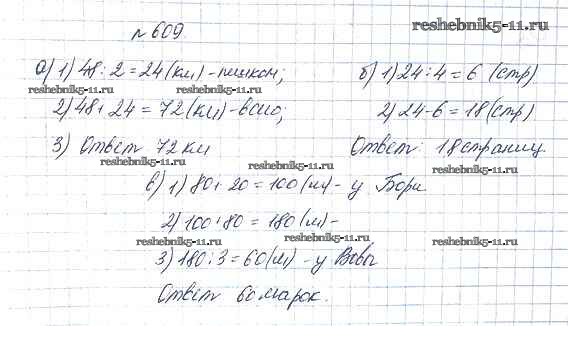 reshebnik5-11.ru
№ 609.
а) 1) 48 : 2 = 24 (км) - пешком;
reshebnik5-11.ru
2) 48 + 24 = 72 (км) - всего;
3) Ответ 72 км
reshebnik5-11.ru
б) 1) 24 : 4 = 6 (стр)
reshebnik5-11.ru
2) 24 - 6 = 18 (стр)
Ответ: 18 страниц
reshebnik5-11.ru
в) 1) 80 + 20 = 100 (м) - у Бори
2) 100 + 80 = 180 (м) -
reshebnik5-11.ru
reshebnik5-11.ru
reshebnik5-11.ru
3) 180 : 3 = 60 (м) - у Вовы
Ответ 60 марок.